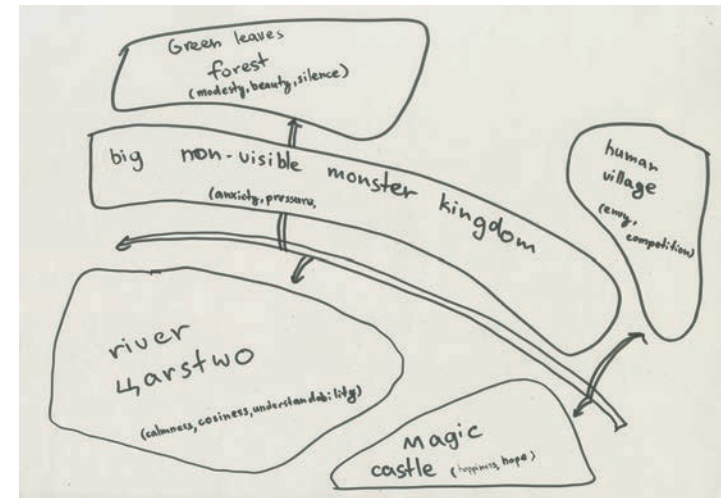 Green leaves
forest
(modesty, beauty, silence)
big non-visible monster kingdom
(anxiety, pressure,
human
village
(envy,
competition)
river
цarstwo
(calmness, cosiness, understandability)
Magic
castle (happiness, hope)